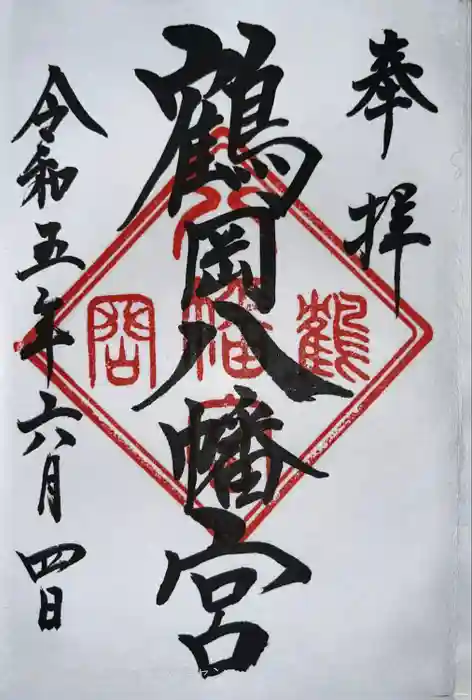 奉拝
鶴岡八幡宮
令和五年六月四日
鶴
八幡
岡